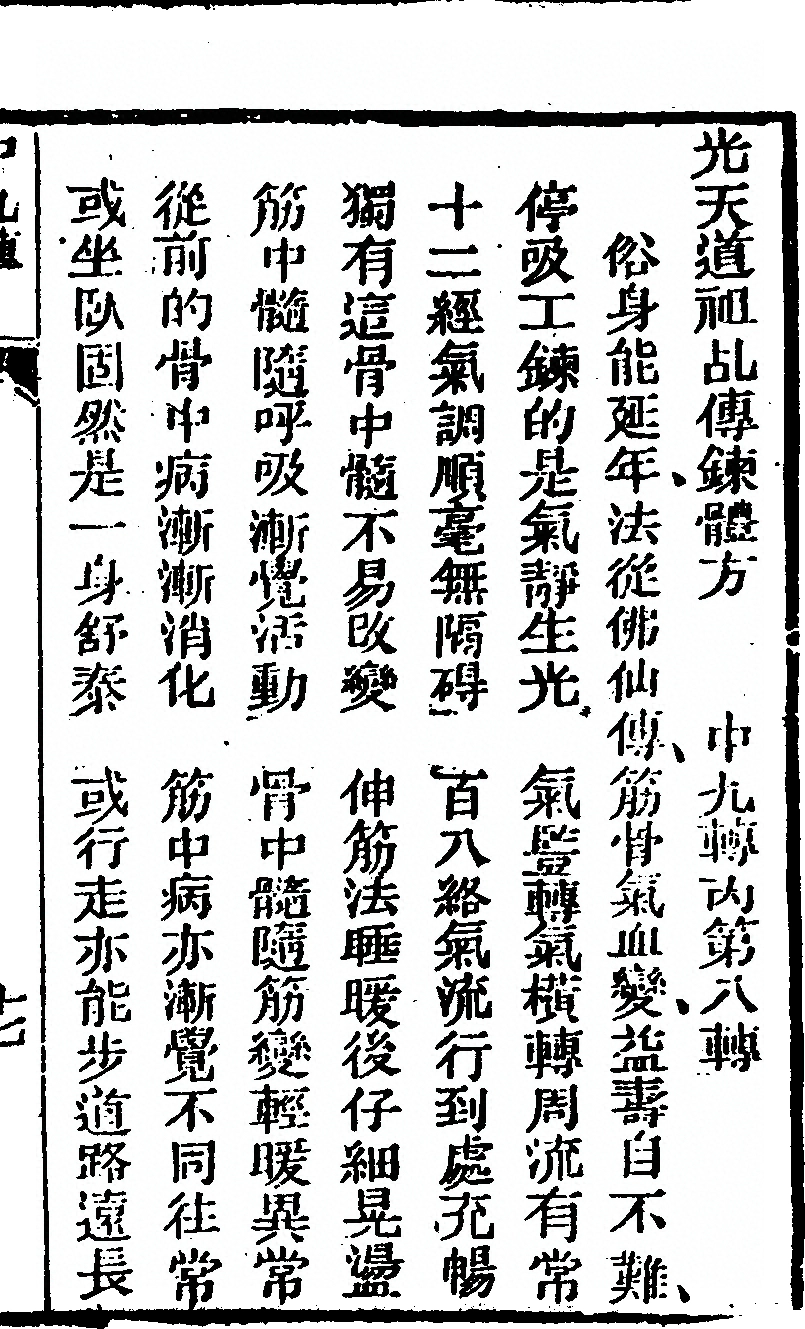 光天道祖乩傳鍊體方　中九轉内第八轉
俗身能延年、法從佛仙傳、筋骨氣血變、益壽自不難、
停吸工鍊的是氣靜生光　氣豎轉氣橫轉周流有常
十二經氣調順毫無隔碍　百八絡氣流行到處充暢
獨有這骨中髓不易改變　伸筋法睡暖後仔細晃盪
筋中髓隨呼吸漸覺活動　骨中髓隨筋變輕暖異常
從前的骨中病漸漸消化　筋中病亦漸覺不同往常
或坐臥固然是一身舒泰　或行走亦能步道路遠長
中九轉
十七